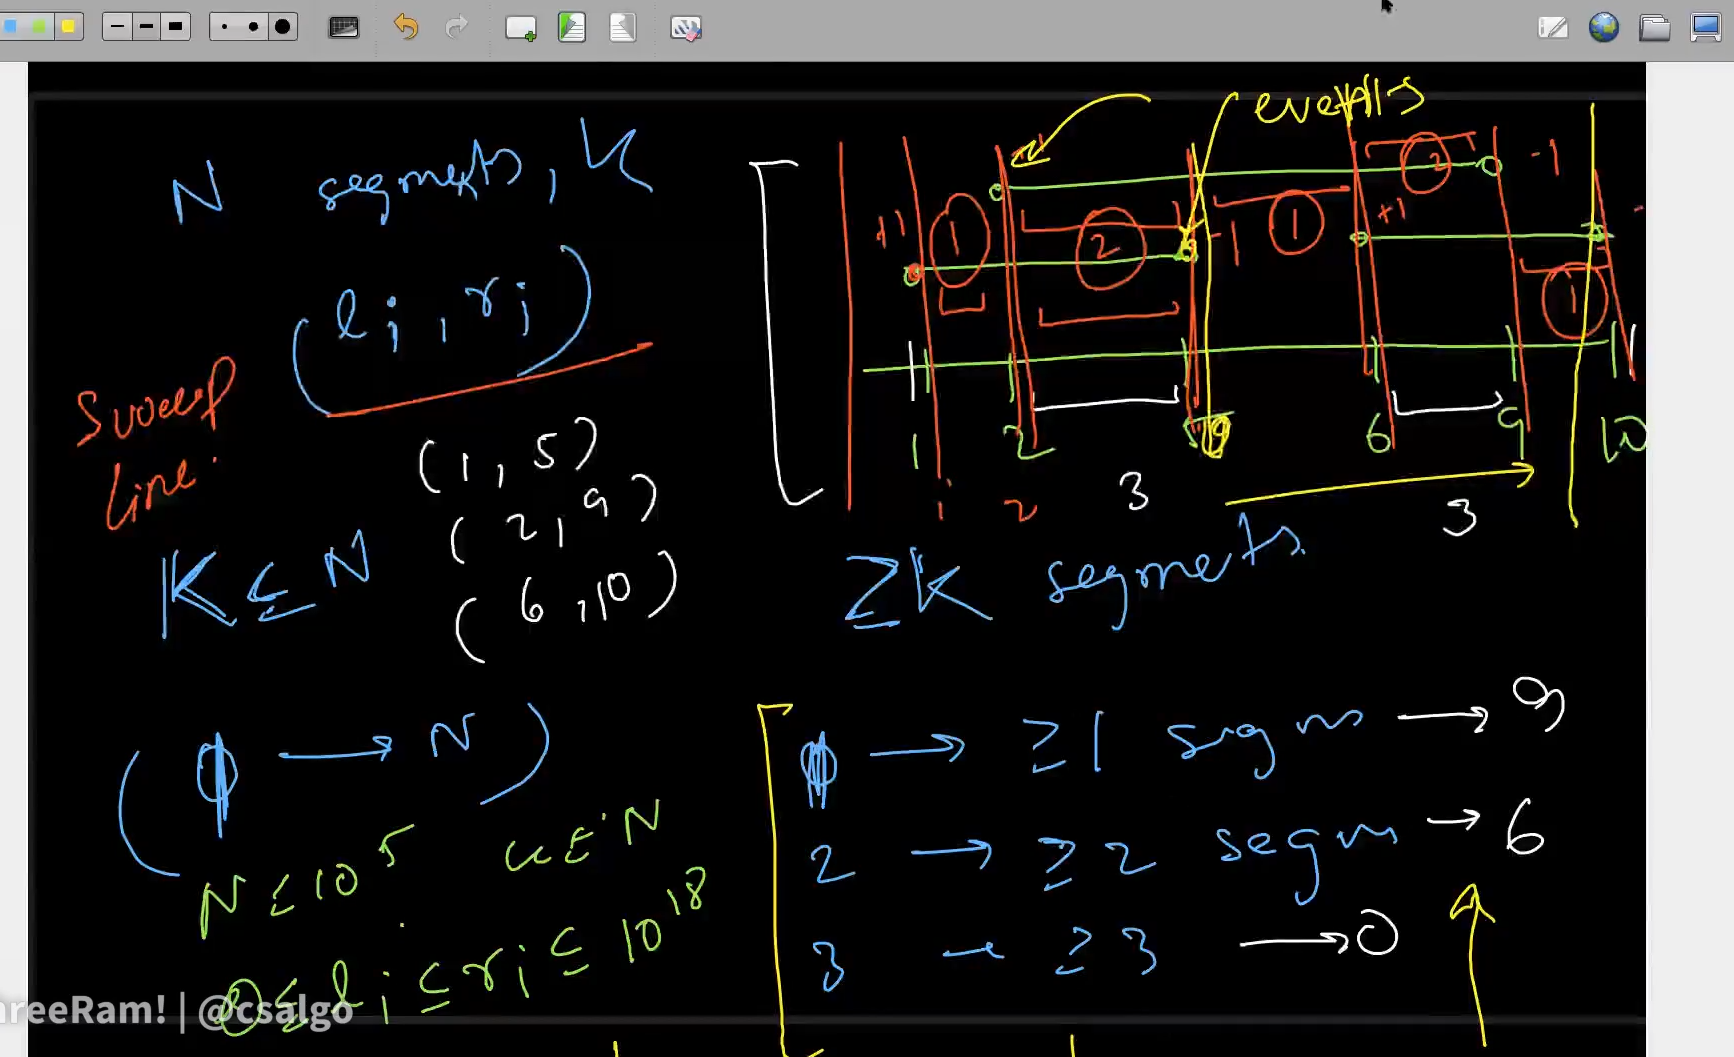 N segments, K
(li, ri)
Sweep
line.
(1, 5)
(2, 9)
(6, 10)
K ≤ N
( 1 → N )
N ≤ 10^5 K ≤ N
0 ≤ li ≤ ri ≤ 10^18
events
+1 1 2 -1 1 +1 2 -1 1
1 2 6 9 10
1 2 3 3
≥K segments.
1 → ≥1 segms → 9
2 → ≥2 segm → 6
3 → ≥3 → 0
reeRam! | @csalgo